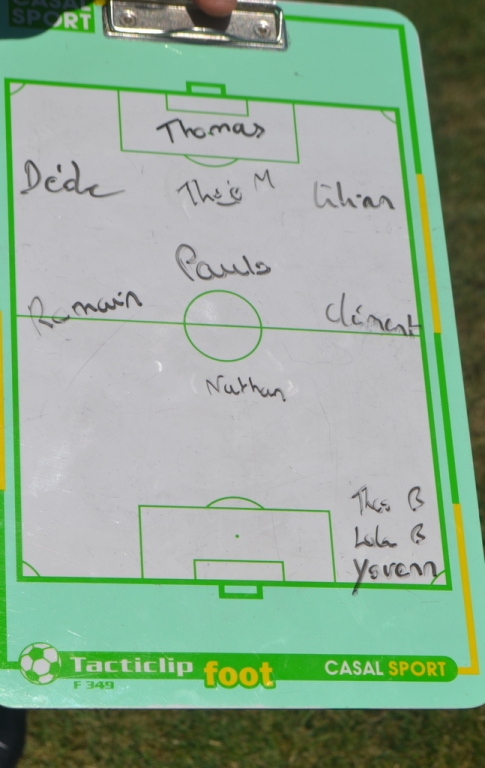 CASAL
SPORT
Thomas
Dédé
Théo M
Lilian
Paulo
Romain
Clément
Nathan
Theo B
Lola B
Yovann
Tacticlip foot
F 349
CASAL SPORT